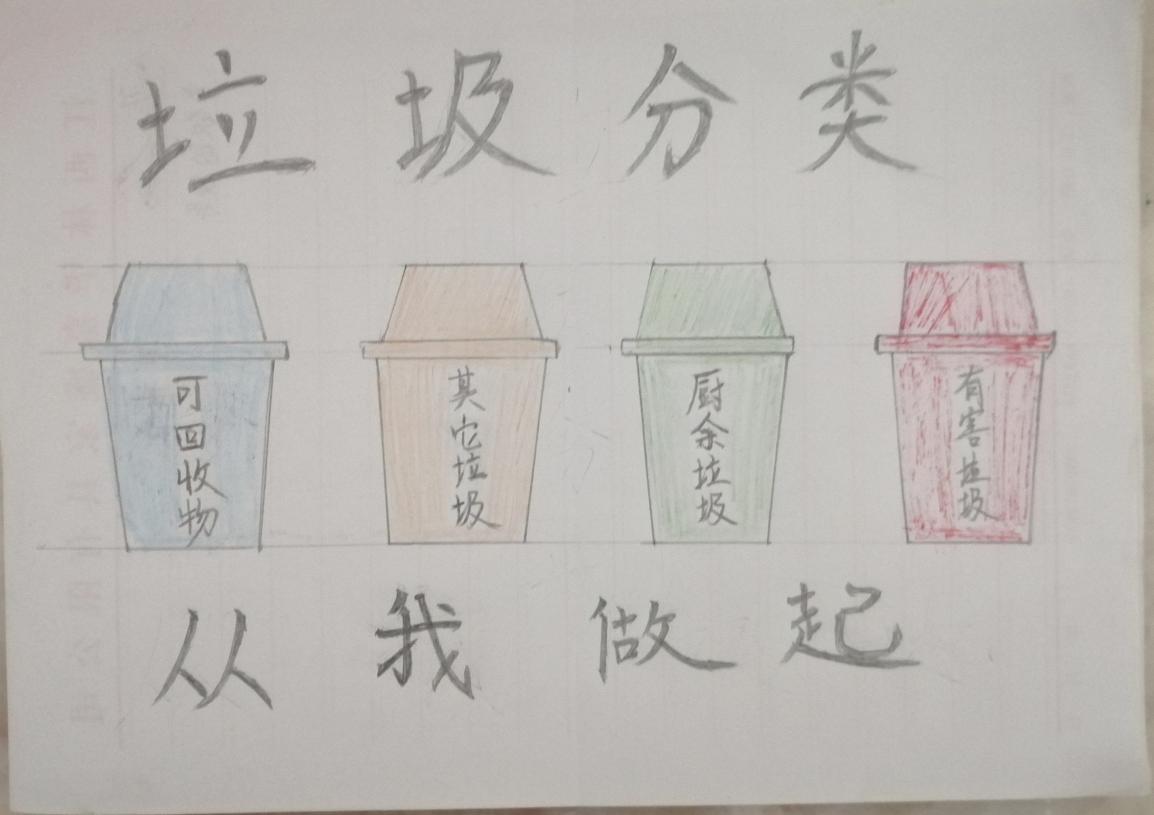 垃圾分类
可回收物
其它垃圾
厨余垃圾
有害垃圾
从我做起